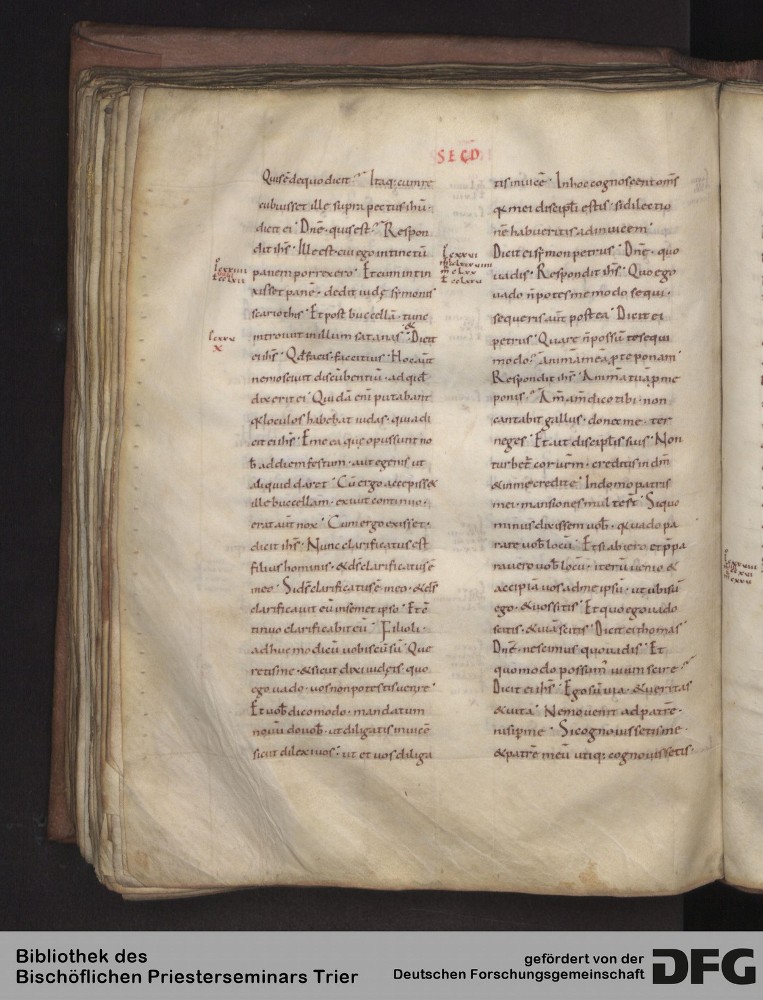 SECD
Quisē de quo dicit. Itaq; cum re
cubuisset ille supra pectus ihū.
dicit ei. Dnē. quis est. Respon
dit ihs. Ille est cui ego intinctū
panem porrexero. Et cum intin
xisset panē. dedit iudę symonis
scariothis. Et post buccellā. tunc
introiuit in illum satanas. & Dicit
ei ihs. Qđ facis. fac citius. Hoc aūt
nemo sciuit discūbentiū. ad quid
dixerit ei. Quidā enī putabant
q̄ loculos habebat iudas. quia di
cit ei ihs. Eme ea quę opus sunt no
b̄ ad diem festum. aut egenis ut
aliquid daret. Cū ergo accepiss&
ille buccellam. exiuit continuo.
erat aūt nox. Cum ergo exisset.
dicit ihs. Nunc clarificatus est
filius hominis. & d̄s clarificatus ē
in eo. Si d̄s clarificatus ē in eo. & d̄s
clarificauit eū in semet ipso. Et cō
tinuo clarificabit eū. Filioli.
adhuc modicū uobiscū sū. Que
retis me. & sicut dixi iudęis quo
ego uado. uos non potestis uenire.
Et uob̄ dico modo. mandatum
nouū do uob̄. ut diligatis inuicē
sicut dilexi uos. ut et uos diliga
lxxv
x
tis inuicē. In hoc cognoscent om̄s
q̄ mei discipłi estis. si dilectio
nē habueritis ad inuicem.
Dicit ei symon petrus. Dnē. quo
uadis. Respondit ihs. Quo ego
uado n̄ potes me modo sequi.
sequeris aūt postea. Dicit ei
petrus. Quare n̄ possū te sequi
modo. animā meā p te ponam.
Respondit ihs. Animā tuā p me
ponis. Am̄ am̄ dico tibi. non
cantabit gallus. donec me. ter
neges. Et ait discipłis suis. Non
turbet̄ cor uēm. creditis in dm̄
& in me credite. In domo patris
mei. mansiones multę sr̄. Si quo
minus dixissem uob̄. q̄ uado pa
rare uob̄ locū. Et si abiero et p̄pa
rauero uob̄ locū. iterū uenio. &
accipiā uos ad me ipsū. ut ubi sū
ego. & uos sitis. Et quo ego uado
scitis. & uiā scitis. Dicit ei thomas.
Dnē. nescimus quo uadis. Et
quomodo possum̄ uiam scire.
Dicit ei ihs. Ego sū uia. & ueritas
& uita. Nemo uenit ad patrē.
nisi p me. Si cognouissetis me.
& patrē meū utiq; cognouissetis.
Bibliothek des
Bischöflichen Priesterseminars Trier
gefördert von der
Deutschen Forschungsgemeinschaft
DFG